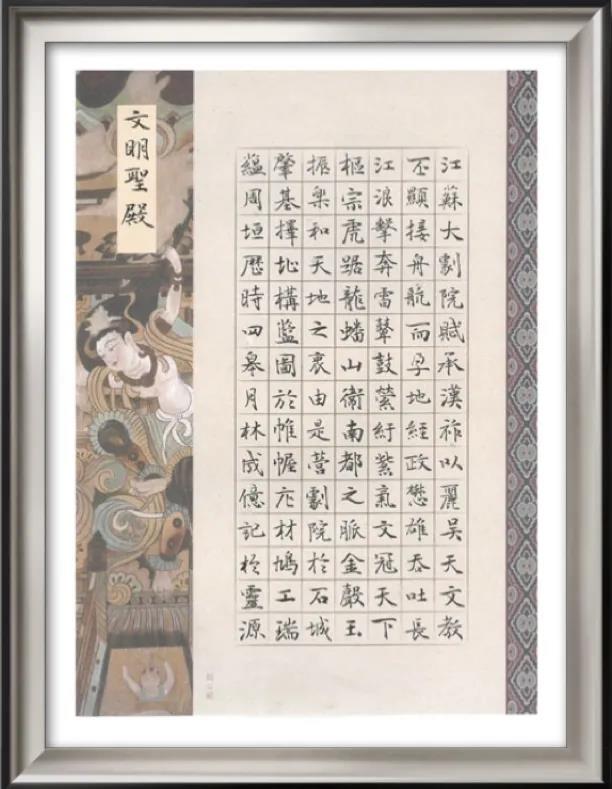 江蘇大劇院賦承漢祚以麗吳天文教
丕顯接舟航而孕地經政懋雄吞吐長
江浪擊奔雷鼙鼓縈紆紫氣文冠天下
樞宗虎踞龍蟠山衛南都之脈金聲玉
振樂和天地之衷由是營劇院於石城
肇基擇址構藍圖於帷幄庀材鳩工瑞
蘊周垣歷時四皋月林成億記於靈源
文明聖殿